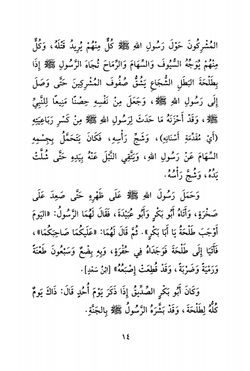 المُشْرِكُونَ حَوْلَ رَسُولِ اللهِ ﷺ كُلٌّ مِنْهُمْ يُرِيدُ قَتْلَهُ، وَكُلٌّ
مِنْهُمْ يُوَجِّهُ السُّيُوفَ وَالسِّهَامَ وَالرِّمَاحَ تُجَاهَ الرَّسُولِ ﷺ إِذَا
بِطَلْحَةَ البَطَلِ الشُّجَاعِ يَشُقُّ صُفُوفَ المُشْرِكِينَ حَتَّى وَصَلَ
إِلَى رَسُولِ اللهِ ﷺ، وَجَعَلَ مِنْ نَفْسِهِ حِصْنًا مَنِيعًا لِلنَّبِيِّ
ﷺ، وَقَدْ أَحْزَنَهُ مَا حَدَثَ لِرَسُولِ اللهِ ﷺ مِنْ كَسْرِ رَبَاعِيَتِهِ
(أَيْ مُقَدِّمَةِ أَسْنَانِهِ)، وَشَجِّ رَأْسِهِ، فَكَانَ يَتَحَمَّلُ بِجِسْمِهِ
السِّهَامَ عَنْ رَسُولِ اللهِ، وَيَتَّقِي النَّبْلَ عَنْهُ بِيَدِهِ حَتَّى شُلَّتْ
يَدُهُ، وَشُجَّ رَأْسُهُ.
وَحَمَلَ رَسُولَ اللهِ ﷺ عَلَى ظَهْرِهِ حَتَّى صَعِدَ عَلَى
صَخْرَةٍ، وَأَتَاهُ أَبُو بَكْرٍ وَأَبُو عُبَيْدَةَ، فَقَالَ لَهُمَا الرَّسُولُ: «اليَوْمَ
أَوْجَبَ طَلْحَةُ يَا أَبَا بَكْرٍ». ثُمَّ قَالَ لَهُمَا: «عَلَيْكُمَا صَاحِبَكُمَا»،
فَأَتَيَا إِلَى طَلْحَةَ فَوَجَدَاهُ فِي حُفْرَةٍ، وَبِهِ بِضْعٌ وَسَبْعُونَ طَعْنَةً
وَرَمْيَةً وَضَرْبَةً، وَقَدْ قُطِعَتْ إِصْبَعُهُ» [ابْنُ سَعْدٍ].
وَكَانَ أَبُو بَكْرٍ الصِّدِّيقُ إِذَا ذَكَرَ يَوْمَ أُحُدٍ قَالَ: ذَاكَ يَوْمٌ
كُلُّهُ لِطَلْحَةَ، وَقَدْ بَشَّرَهُ الرَّسُولُ ﷺ بِالجَنَّةِ.
١٤